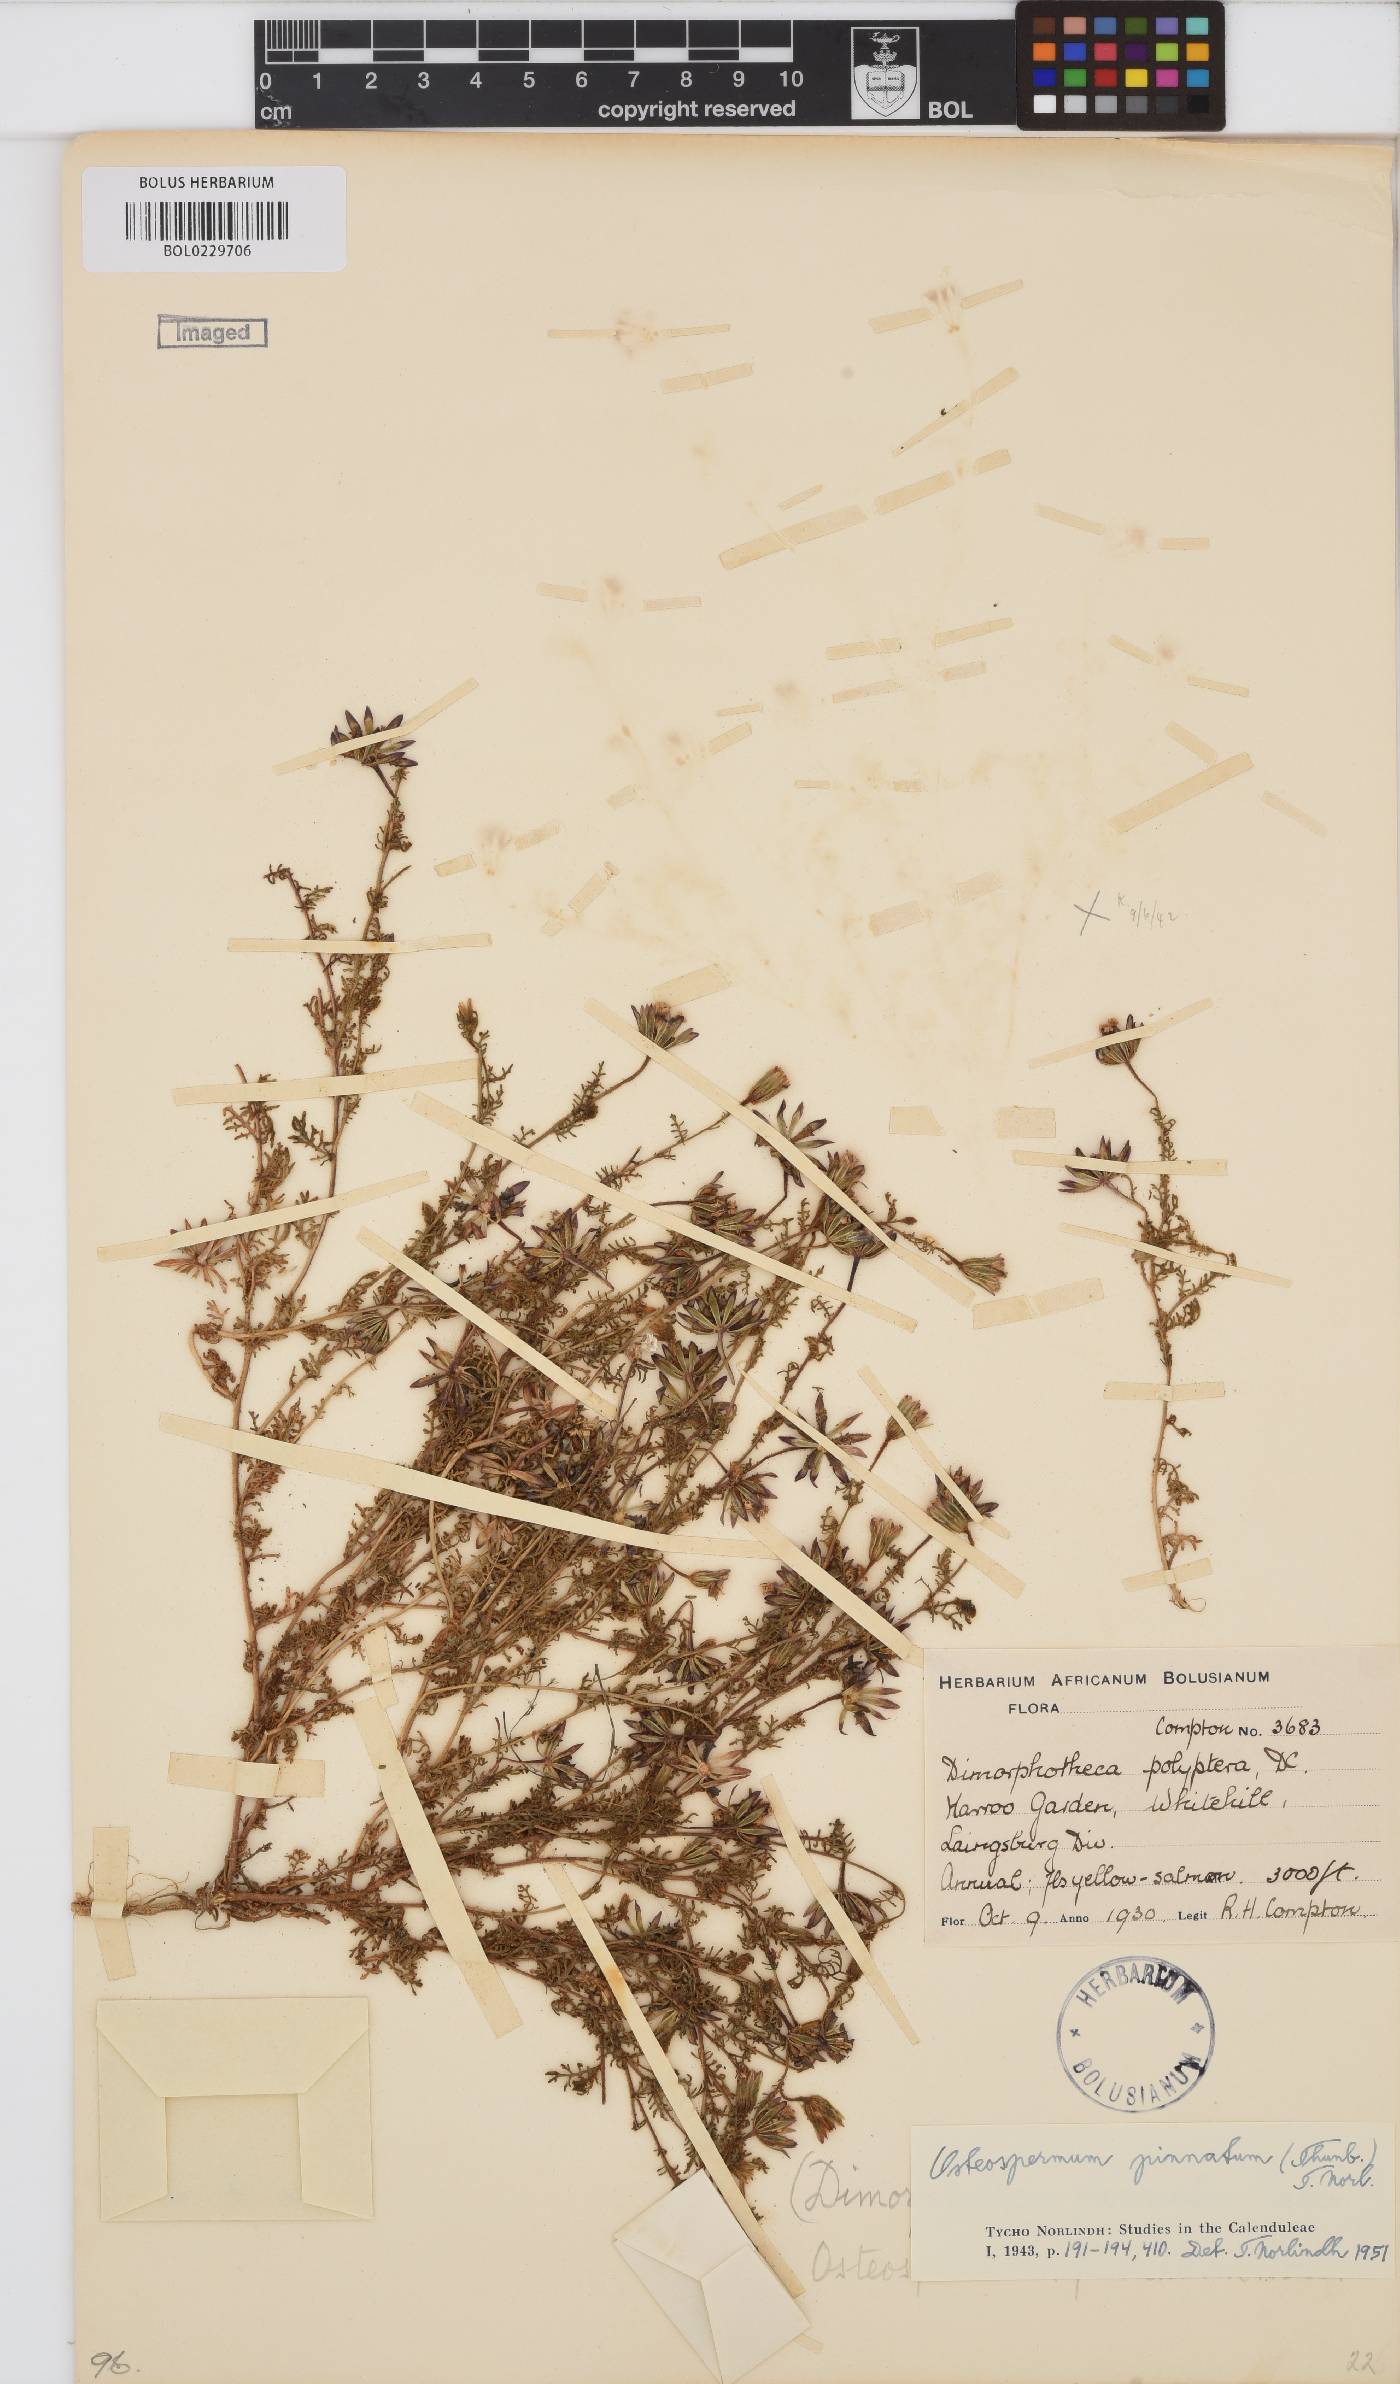 0 1 2 3 4 5 6 7 8 9 10
cm copyright reserved BOL
BOLUS HERBARIUM
BOL0229706
Imaged
X K. 9/6/42
HERBARIUM AFRICANUM BOLUSIANUM
FLORA
Compton No. 3683
Dimorphotheca polyptera, DC.
Karroo Garden, Whitehill,
Laingsburg Div.
Annual; fls yellow-salmon. 3000ft.
Flor Oct. 9. Anno 1930. Legit R.H. Compton.
HERBARIUM
BOLUSIANUM
Osteospermum pinnatum (Thunb.)
T. Norl.
TYCHO NORLINDH: Studies in the Calenduleae
I, 1943, p. 191-194, 410. Det. T. Norlindh 1951
(Dimor
Osteos
96.
22